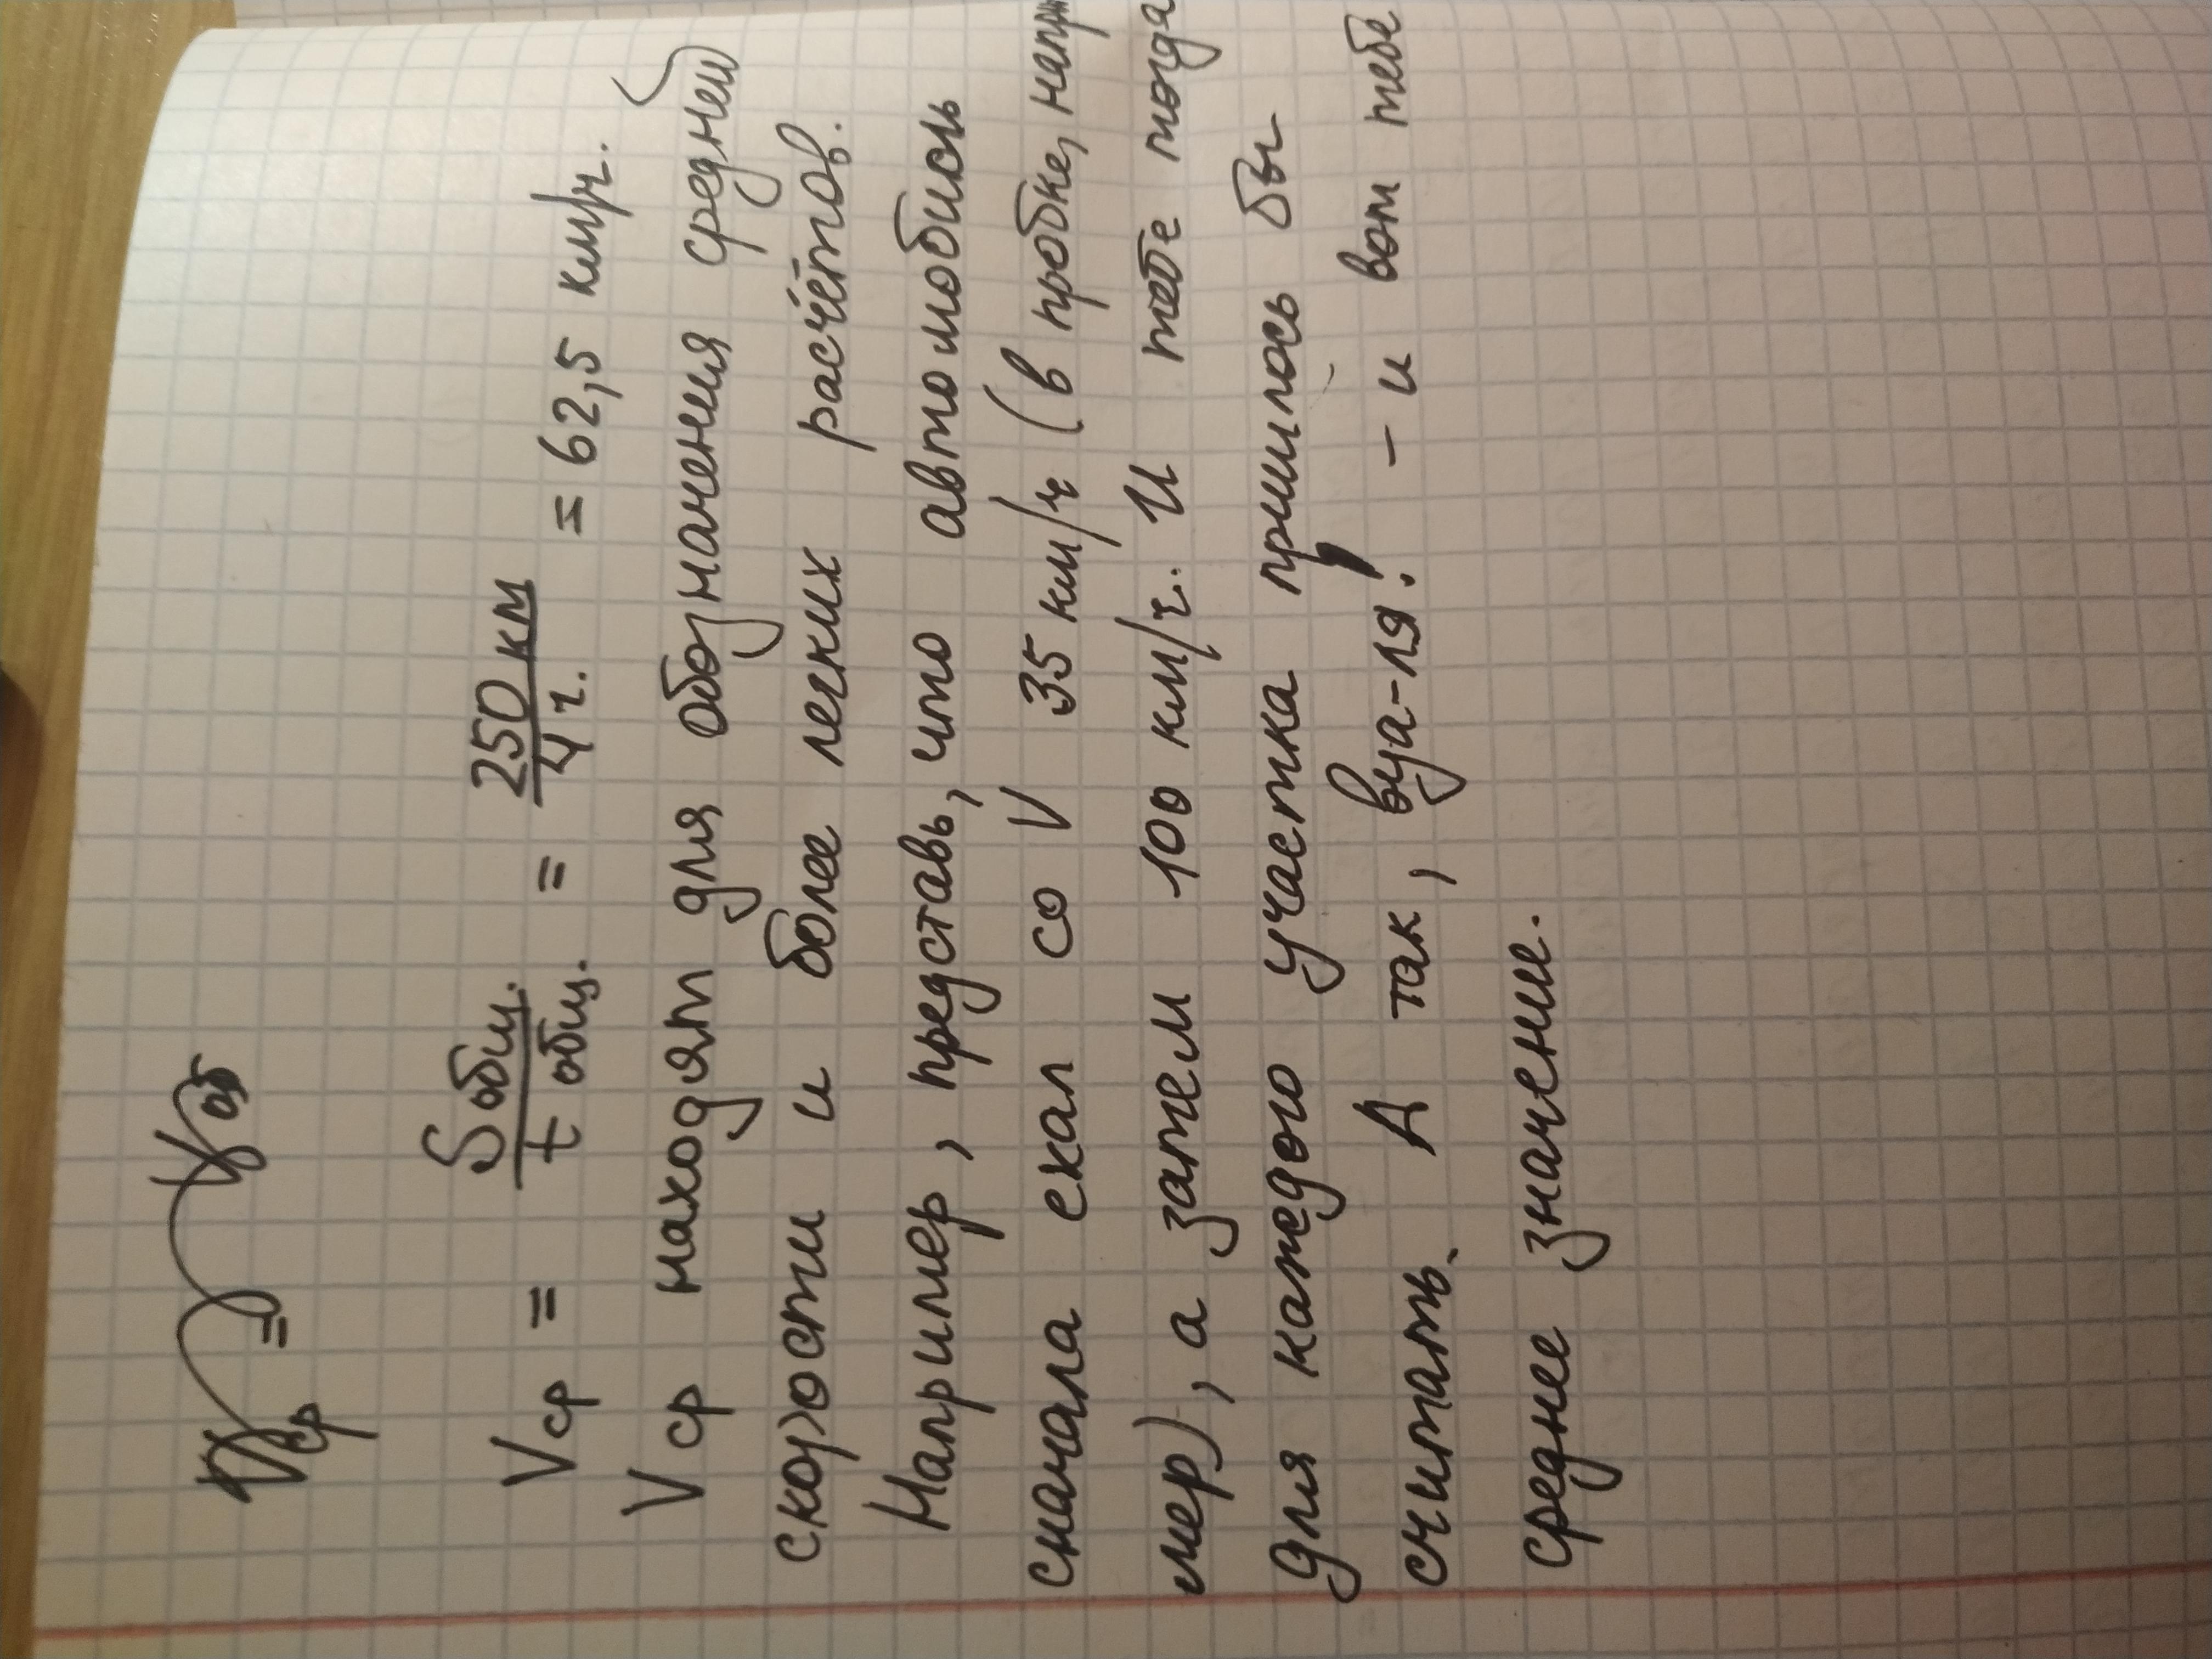 Vср = Sобщ. / t общ. = 250 км / 4 ч. = 62,5 км/ч.
Vср находят для обозначения средней
скорости и более легких расчётов.
Например, представь, что автомобиль
сначала ехал со V 35 км/ч (в пробке, напри
мер), а затем 100 км/ч. И тебе тогда
для каждого участка пришлось бы
считать. А так, вуа-ля! - и вот тебе
среднее значение.